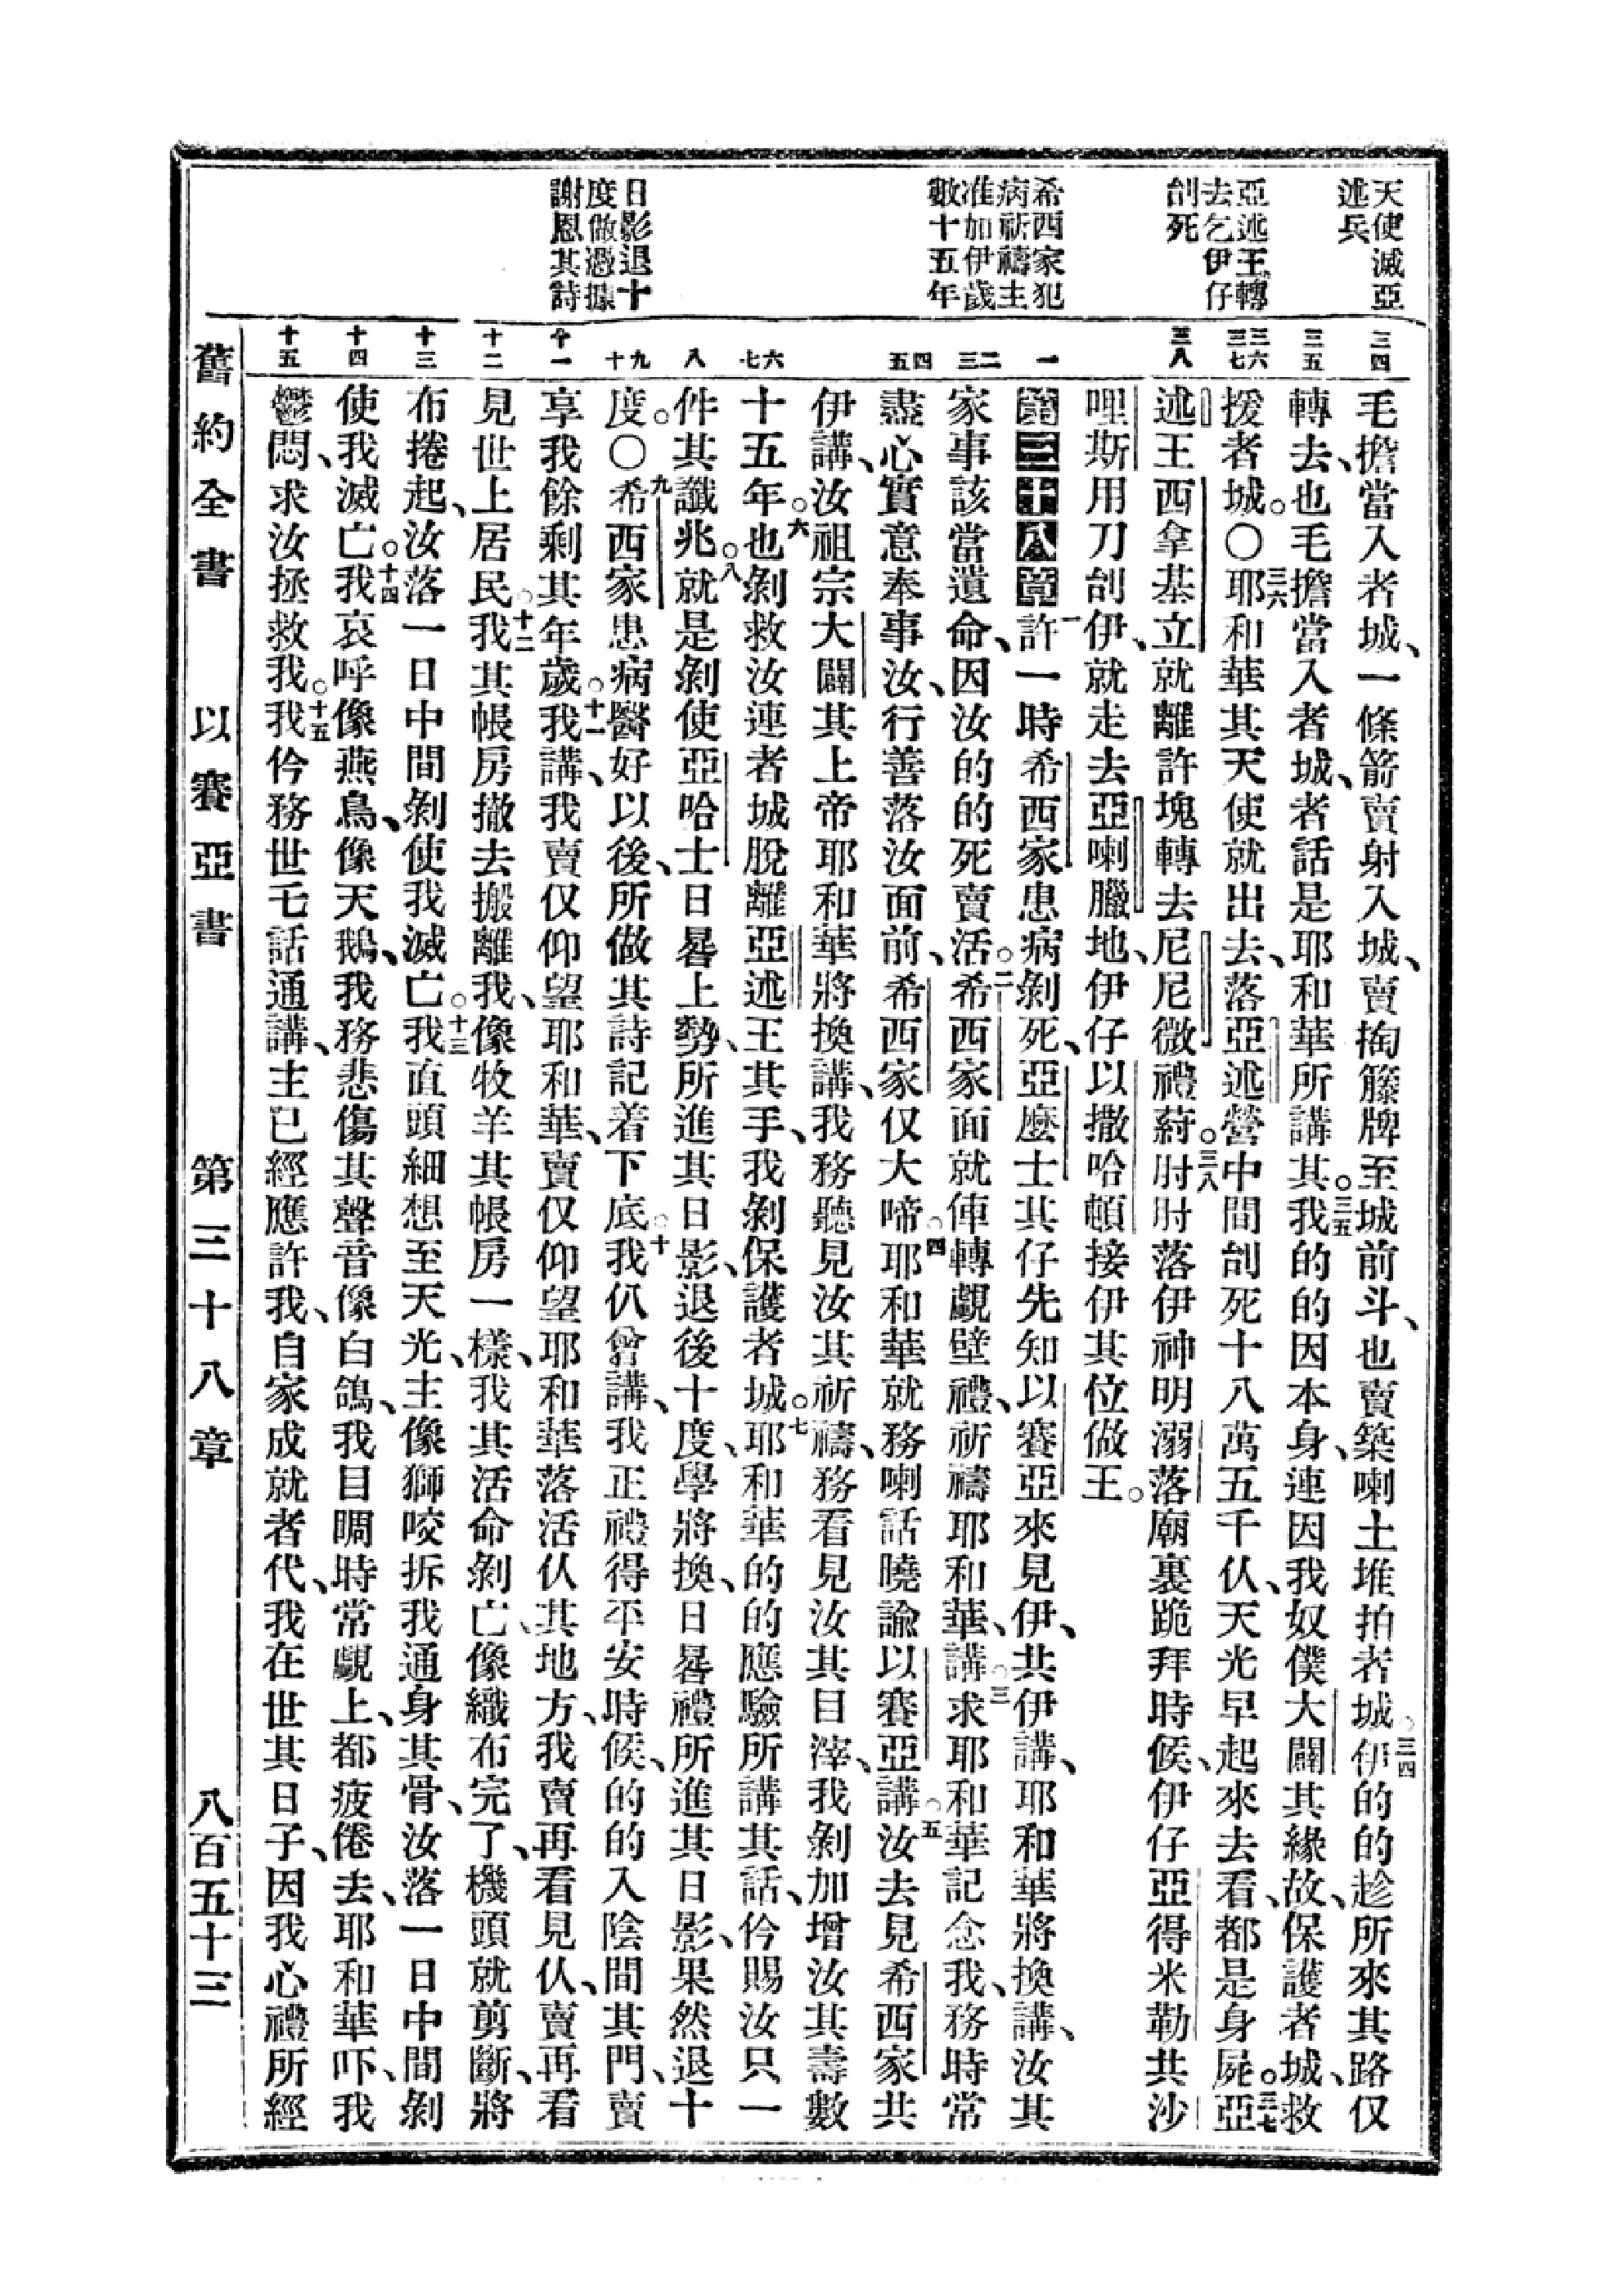 天使滅亞
述兵
亞述王轉
去乞伊仔
刣死
希西家犯
病祈禱主
准加伊歲
數十五年
日影退十
度做憑據
謝恩其詩
三四
三五
三六
三七
三八
一
二
三
四
五
六
七
八
九
十
十一
十二
十三
十四
十五
毛擔當入者城、一條箭賣射入城、賣掏籐牌至城前斗、也賣築喇土堆拍者城。三四伊的的趁所來其路仅
轉去、也毛擔當入者城、者話是耶和華所講其。三五我的的因本身、連因我奴僕大闢其緣故、保護者城、救
援者城。〇三六耶和華其天使就出去、落亞述營中間刣死十八萬五千仈、天光早起來去看、都是身屍。三七亞
述王西拿基立就離許塊轉去、尼尼微禮葤。三八肘肘落伊神明溺落廟裏跪拜時候、伊仔亞得米勒共沙
哩斯用刀刣伊、就走去亞喇臘地、伊仔以撒哈頓接伊其位做王。
第三十八章一許一時希西家患病剝死、亞麼士其仔先知以賽亞來見伊、共伊講、耶和華將換講、汝其
家事該當遺命、因汝的的死賣活。二希西家面就俥轉覷壁禮、祈禱耶和華、講。三求耶和華記念我、務時常
盡心實意奉事汝、行善落汝面前、希西家仅大啼。四耶和華就務喇話曉諭以賽亞講。五汝去見希西家共
伊講、汝祖宗大闢其上帝耶和華將換講、我務聽見汝其祈禱、務看見汝其目滓、我剝加增汝其壽數
十五年。六也剝救汝連者城脫離亞述王其手、我剝保護者城。七耶和華的的應驗所講其話、仱賜汝只一
件其讖兆。八就是剝使亞哈士日晷上勢、所進其日影、退後十度、學將換、日晷禮所進其日影、果然退十
度。〇九希西家患病醫好以後、所做其詩記着下底。十我仈曾講、我正禮得平安時候、的的入陰間其門、賣
享我餘剩其年歲。十一我講、我賣仅仰望耶和華、賣仅仰望耶和華落活仈其地方、我賣再看見仈、賣再看
見世上居民。十二我其帳房撤去搬離我、像牧羊其帳房一樣、我其活命剝亡、像織布完了、機頭就剪斷、將
布捲起、汝落一日中間剝使我滅亡。十三我直頭細想至天光、主像獅咬拆我通身其骨、汝落一日中間剝
使我滅亡。十四我哀呼像燕鳥、像天鵝、我務悲傷其聲音像白鴿、我目睭時常覷上、都疲倦去、耶和華吓、我
鬱悶、求汝拯救我。十五我仱務世乇話通講、主已經應許我、自家成就者代、我在世其日子、因我心禮所經
舊約全書　以賽亞書　第三十八章　八百五十三